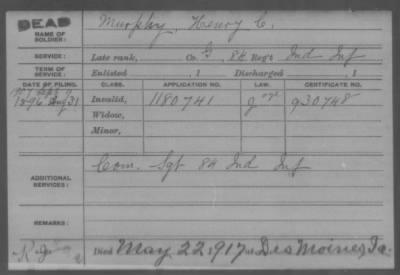 DEAD
NAME OF SOLDIER: Murphy, Henry C.
SERVICE: Late rank, Co. G, 84 Reg't Ind Inf
TERM OF SERVICE: Enlisted , 1 Discharged , 1
DATE OF FILING. CLASS. APPLICATION NO. LAW. CERTIFICATE NO.
1907
1896 Aug 31 Invalid, 1180741 930748
Widow,
Minor,
ADDITIONAL SERVICES: Com. Sgt 84 Ind Inf
REMARKS:
Died May 22 1917 at Des Moines, Ia.